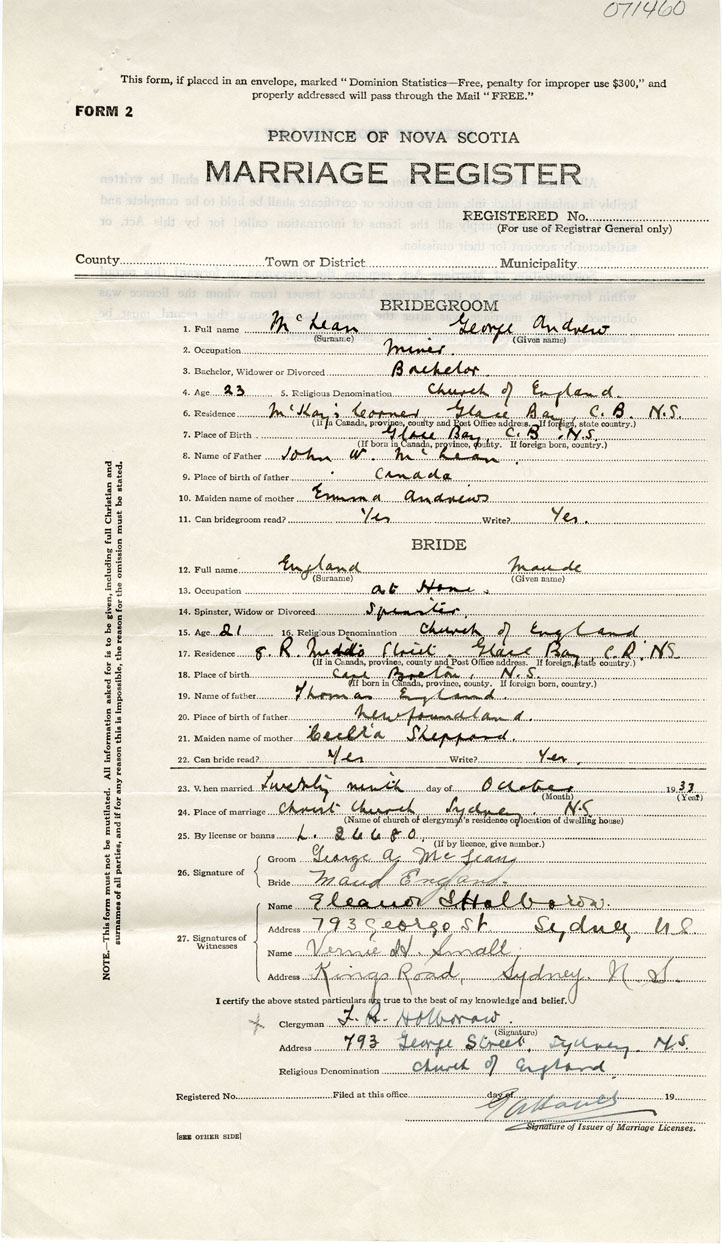 071460
This form, if placed in an envelope, marked "Dominion Statistics—Free, penalty for improper use $300," and
properly addressed will pass through the Mail "FREE."
FORM 2
PROVINCE OF NOVA SCOTIA
MARRIAGE REGISTER
REGISTERED No.
(For use of Registrar General only)
County Town or District Municipality
BRIDEGROOM
1. Full name McLean George Andrew
(Surname) (Given name)
2. Occupation Miner.
3. Bachelor, Widower or Divorced Bachelor.
4. Age 23 5. Religious Denomination Church of England.
6. Residence McKay's Corner Glace Bay, C.B. N.S.
(If in Canada, province, county and Post Office address. If foreign, state country.)
7. Place of Birth Glace Bay, C.B. N.S.
(If born in Canada, province, county. If foreign born, country.)
8. Name of Father John W. McLean.
9. Place of birth of father Canada
10. Maiden name of mother Emma Andrews
11. Can bridegroom read? Yes Write? Yes.
BRIDE
12. Full name England Maude
(Surname) (Given name)
13. Occupation at Home.
14. Spinster, Widow or Divorced Spinster.
15. Age 21 16. Religious Denomination Church of England
17. Residence 8. R. Street. Glace Bay, C.B. NS
(If in Canada, province, county and Post Office address. If foreign, state country.)
18. Place of birth Cape Breton, N.S.
(If born in Canada, province, county. If foreign born, country.)
19. Name of father Thomas England.
20. Place of birth of father Newfoundland.
21. Maiden name of mother Cecilia Sheppard.
22. Can bride read? Yes Write? Yes.
23. When married Twenty ninth day of October 1933
(Month) (Year)
24. Place of marriage Christ Church, Sydney, N.S
(Name of church or clergyman's residence or location of dwelling house)
25. By license or banns L. 26680.
(If by licence, give number.)
26. Signature of
Groom George A. McLean
Bride Maud England.
27. Signatures of Witnesses
Name Eleanor Holborow.
Address 793 George St Sydney NS
Name Vernie H. Small
Address Kings Road, Sydney. N.S.
I certify the above stated particulars are true to the best of my knowledge and belief.
Clergyman Holborrow.
(Signature)
Address 793 George Street, Sydney. N.S.
Religious Denomination Church of England
Registered No. Filed at this office day of 19
Signature of Issuer of Marriage Licenses.
[SEE OTHER SIDE]
NOTE.—This form must not be mutilated. All information asked for is to be given, including full Christian and
surnames of all parties, and if for any reason this is impossible, the reason for the omission must be stated.